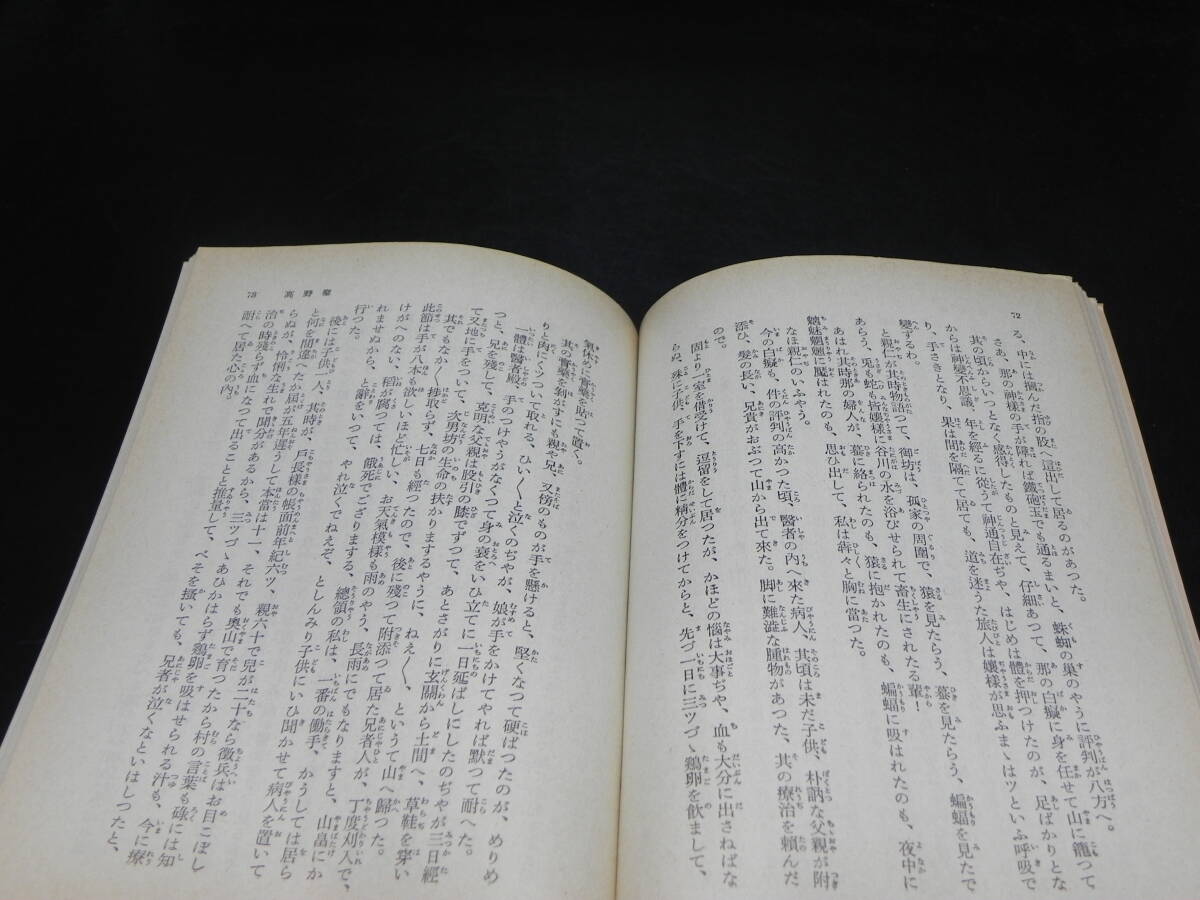 72
る、中には摑んだ指の股へ這出して居るのがあつた。
さあ、那の神樣の手が障れば鐵砲玉でも通るまいと、蜘蛛の巣のやうに評判が八方へ。
其の頃からいつとなく感得したものと見えて、仔細あつて、那の白癡に身を任せて山に籠つて
からは神變不思議、年を經るに從うて神通自在ぢや、はじめは體を押つけたのが、足ばかりとな
り、手さきとなり、果は間を隔てて居ても、道を迷うた旅人は孃樣が思ふまゝはツといふ呼吸で
變ずるわ。
と親仁が其時物語つて、御坊は、孤家の周圍で、猿を見たらう、蟇を見たらう、蝙蝠を見たで
あらう、兎も蛇も皆孃樣に谷川の水を浴びせられて畜生にされたる輩！
あはれ其時那の婦人が、蟇に絡られたのも、猿に抱かれたのも、蝙蝠に吸はれたのも、夜中に
魑魅魍魎に魘はれたのも、思ひ出して、私は犇々と胸に當つた。
なほ親仁のいふやう。
今の白癡も、件の評判の高かつた頃、醫者の內へ來た病人、其頃は未だ子供、朴訥な父親が附
添ひ、髮の長い、兄貴がおぶつて山から出て來た。脚に難澁な腫物があつた、其の療治を賴んだ
ので。
固より一室を借受けて、逗留をして居つたが、かほどの惱は大事ぢや、血も大分に出さねばな
らぬ、殊に子供、手を下すには體に精分をつけてからと、先づ一日に三ツづゝ鷄卵を飮まして、
73　高野聖
氣休めに膏藥を貼つて置く。
其の膏藥を剝がすにも親や兄、又傍のものが手を懸けると、堅くなつて硬ばつたのが、めりめ
りと肉にくツついて取れる、ひい〳〵と泣くのぢやが、娘が手をかけてやれば默つて耐へた。
一體は醫者殿、手のつけやうがなくつて身の衰をいひ立てに一日延ばしにしたのぢやが三日經
つと、兄を殘して、克明な父親は股引の膝でずつて、あとさがりに玄關から土間へ、草鞋を穿い
て又地に手をついて、次男坊の生命の扶かりまするやうに、ねえ〳〵、というて山へ歸つた。
其でもなか〳〵捗取らず、七日も經つたので、後に殘つて附添つて居た兄者人が、丁度刈入で、
此節は手が八本も欲しいほど忙しい、お天氣模樣も雨のやう、長雨にでもなりますと、山畠にか
けがへのない、稻が腐つては、餓死でござりまする、總領の私は、一番の働手、かうしては居ら
れませぬから、と辭をいつて、やれ泣くでねえぞ、としんみり子供にいひ聞かせて病人を置いて
行つた。
後には子供一人、其時が、戶長樣の帳面前年紀六ツ、親六十で兒が二十なら徵兵はお目こぼし
と何を間違へたか屆が五年遲うして本當は十一、それでも奧山で育つたから村の言葉も碌には知
らぬが、怜悧な生れで聞分があるから、三ツづゝあひかはらず鷄卵を吸はせられる汁も、今に療
治の時殘らず血になつて出ることと推量して、べそを搔いても、兄者が泣くなといはしつたと、
耐へて居た心の內。